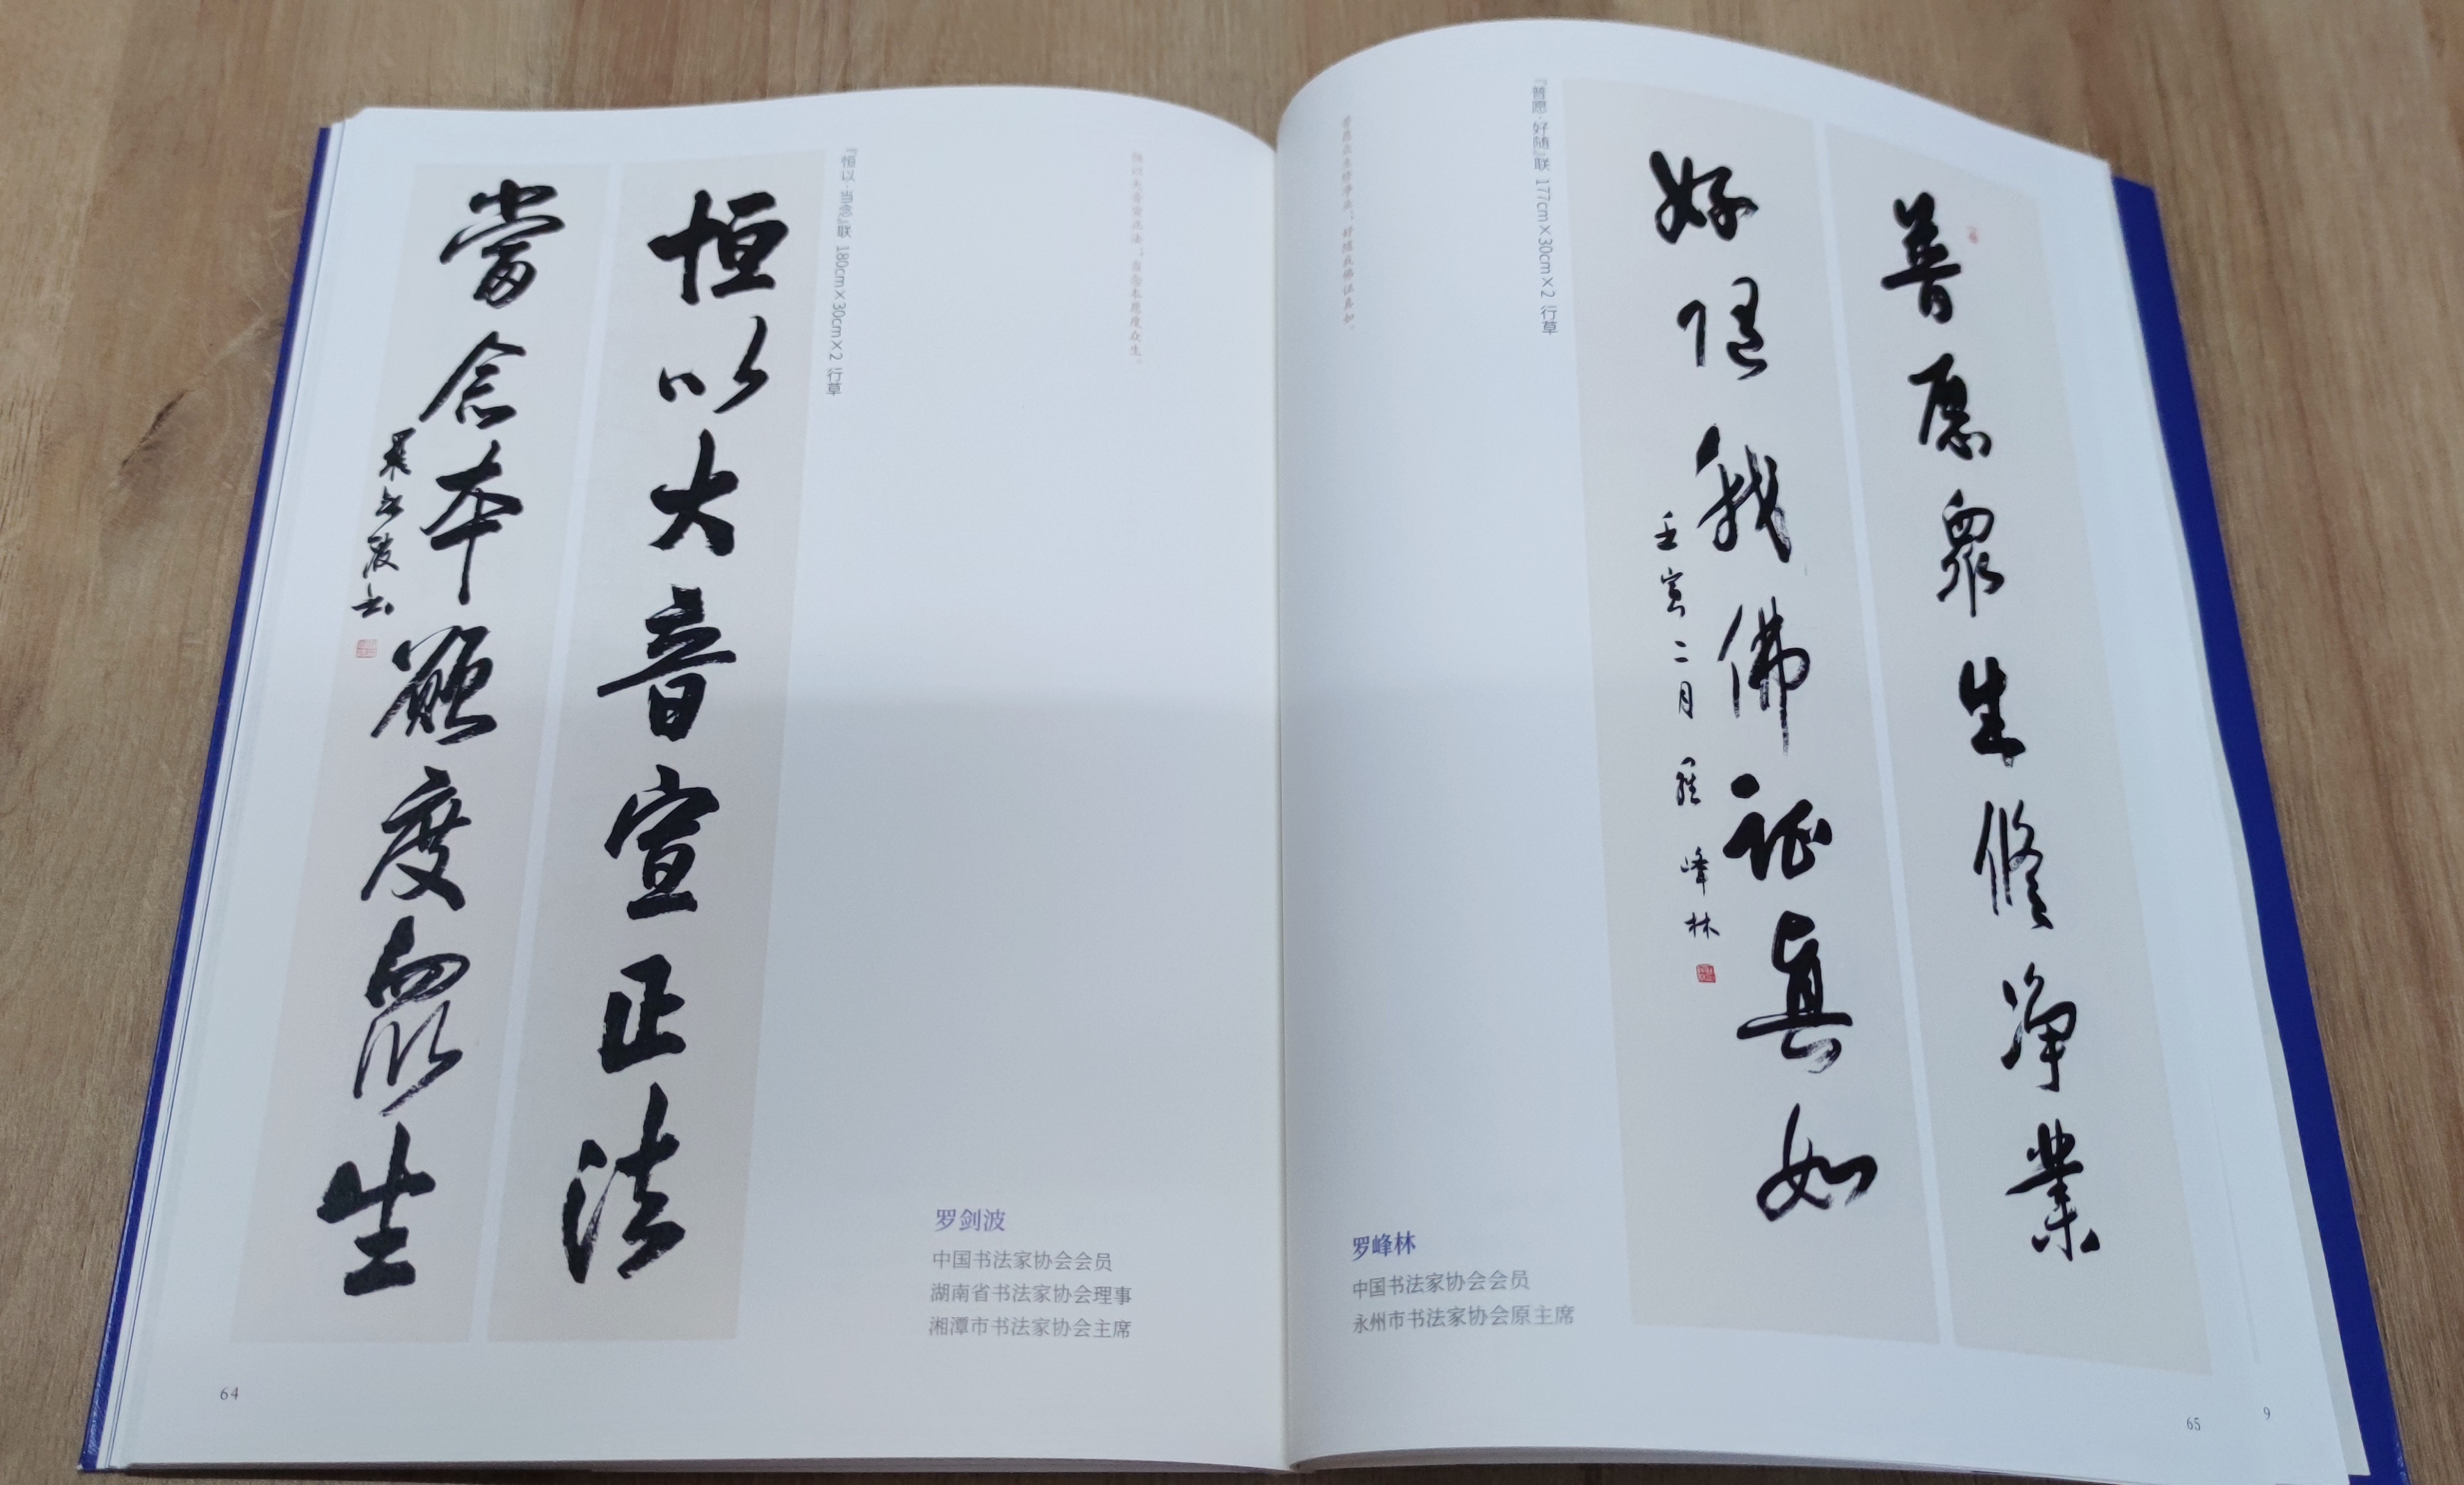 恒以大音宣正法
當念本願度眾生
羅剑波书
『恒以·当念』联 180cm×30cm×2 行草
恒以大音宣正法；当念本愿度众生。
罗剑波
中国书法家协会会员
湖南省书法家协会理事
湘潭市书法家协会主席
64
普愿眾生修净業
好随我佛证真如
壬寅二月 羅峰林
『普愿·好随』联 177cm×30cm×2 行草
普愿众生修净业；好随我佛证真如。
罗峰林
中国书法家协会会员
永州市书法家协会原主席
65
9